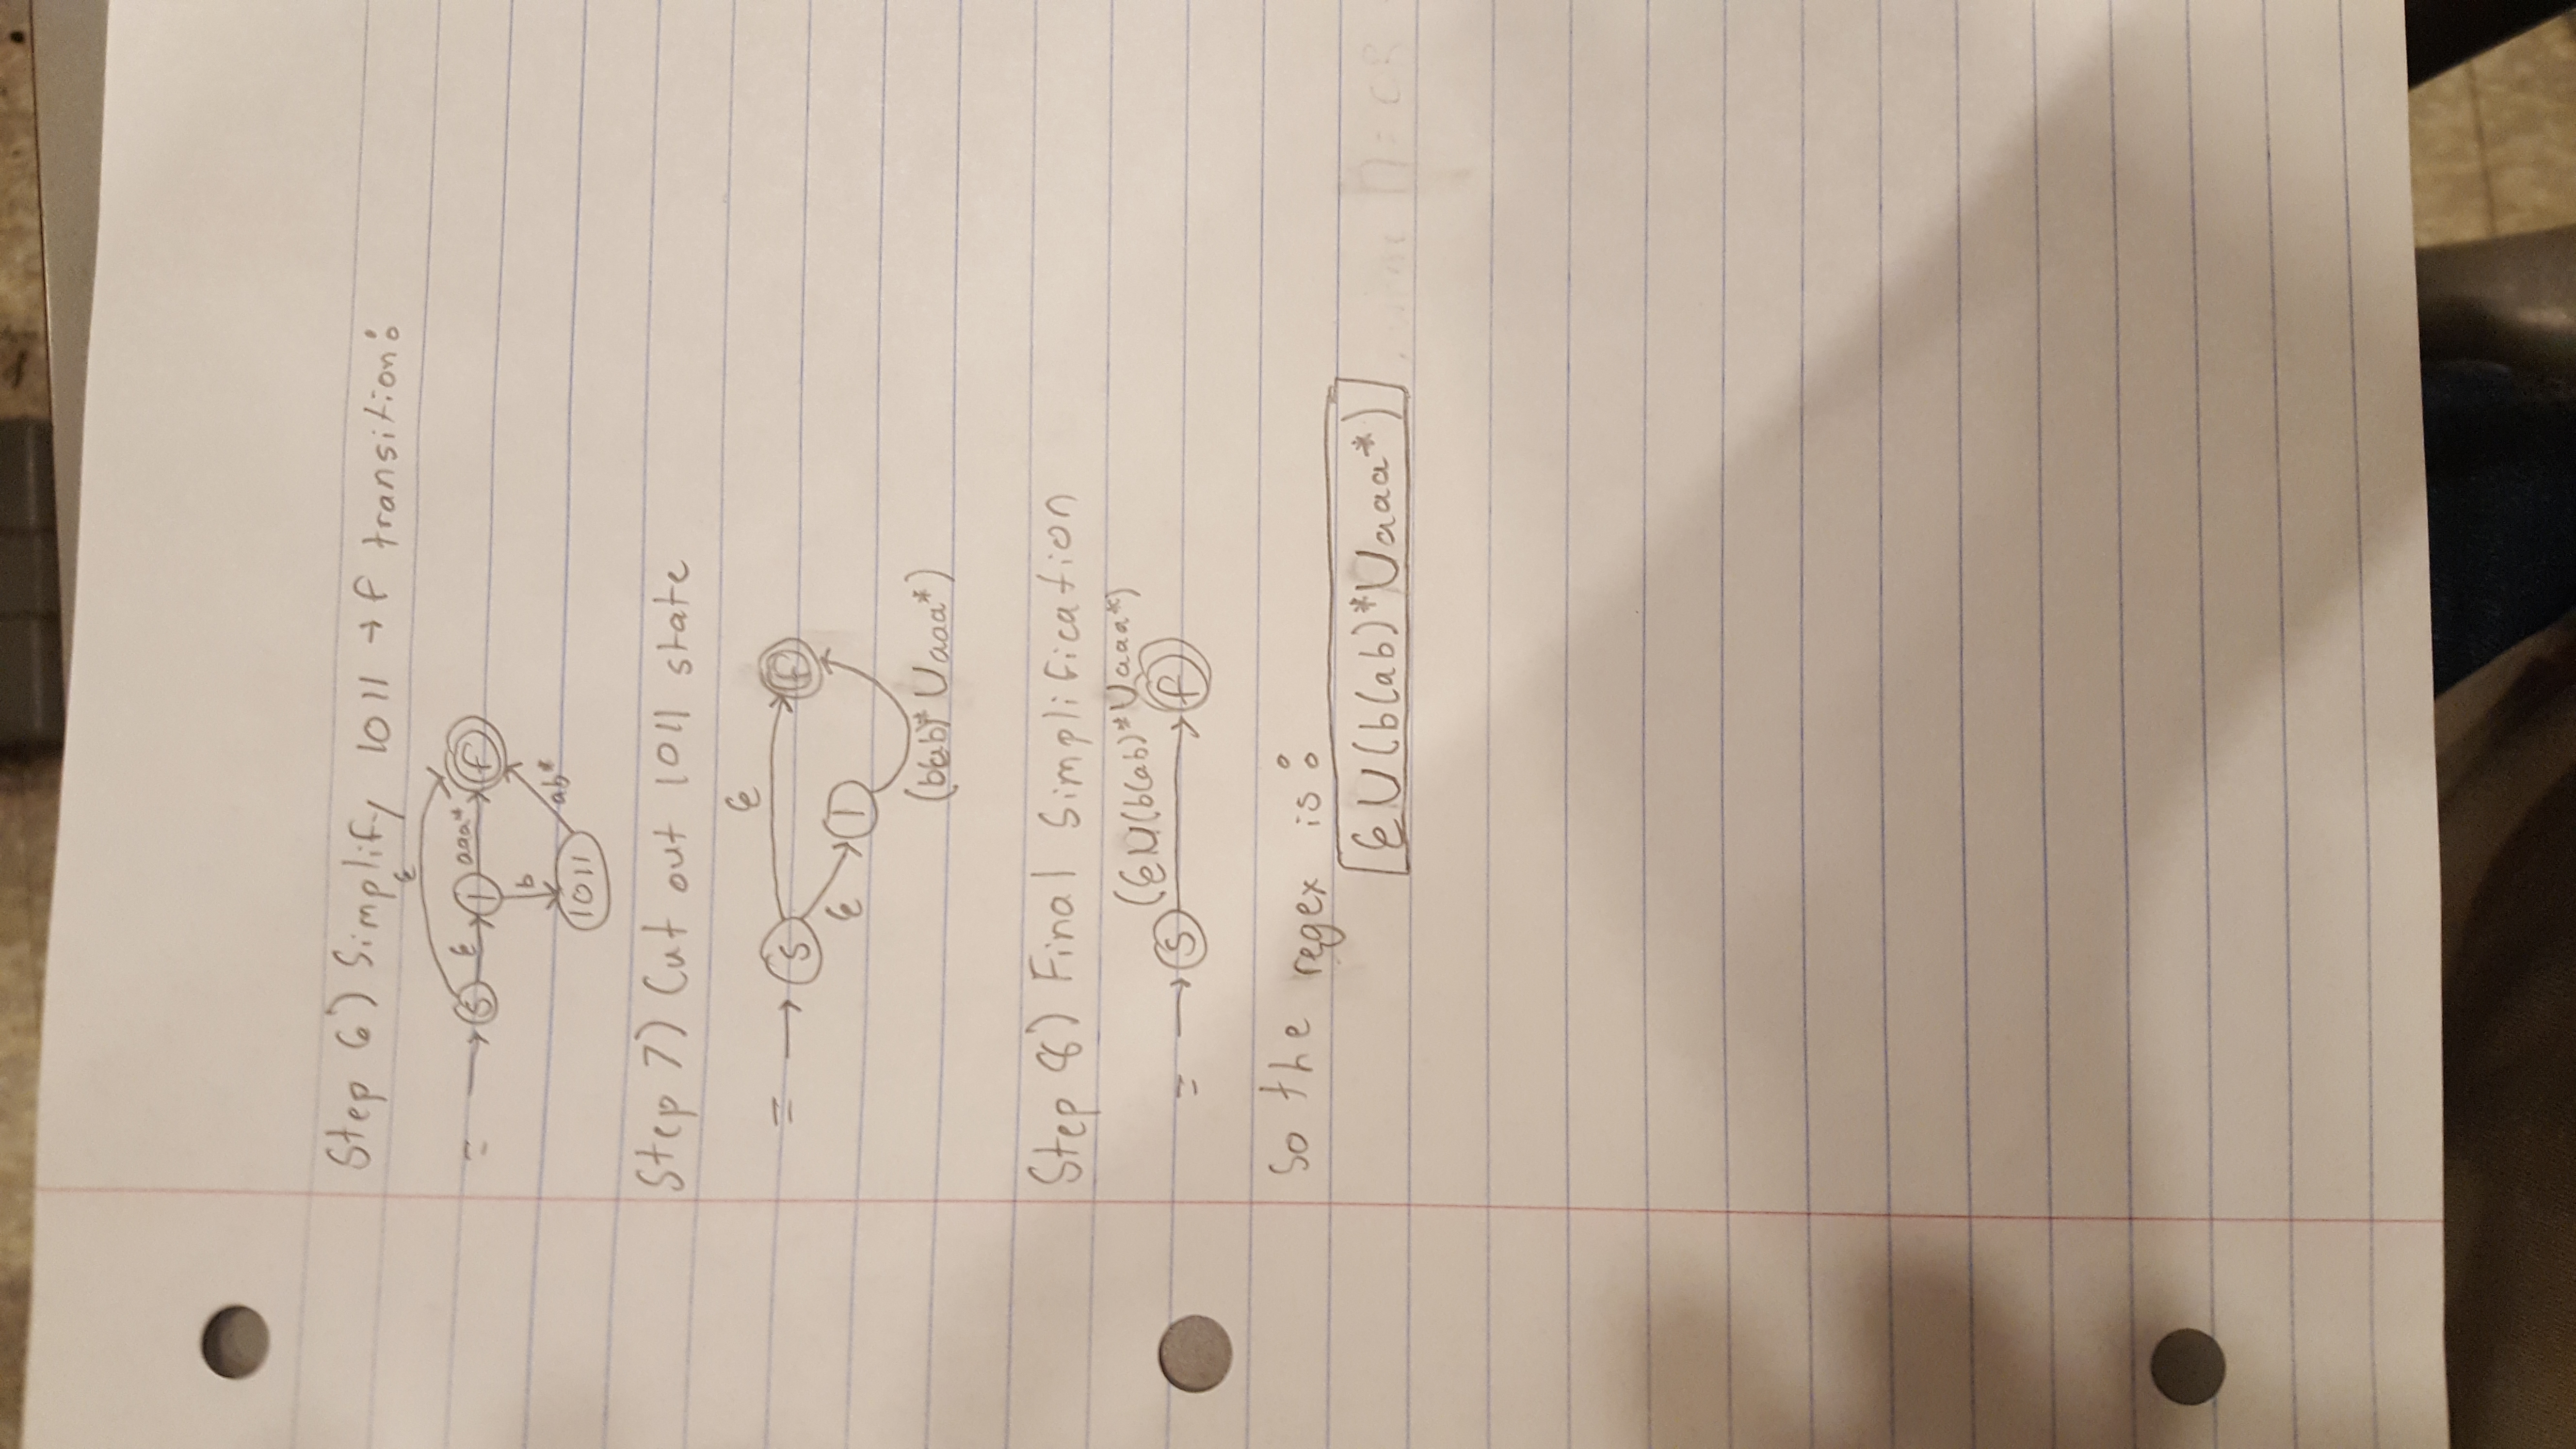 Step 6) Simplify 1011 → f transition:
ε
= → S ε 1 aaa* f
b
ab*
1011
Step 7) Cut out 1011 state
ε
= → S f
ε 1
(b(ab)* ∪ aaa*)
Step 8) Final Simplification
(ε∪(b(ab)*∪aaa*)
= → S f
So the regex is:
ε∪(b(ab)*∪aaa*)